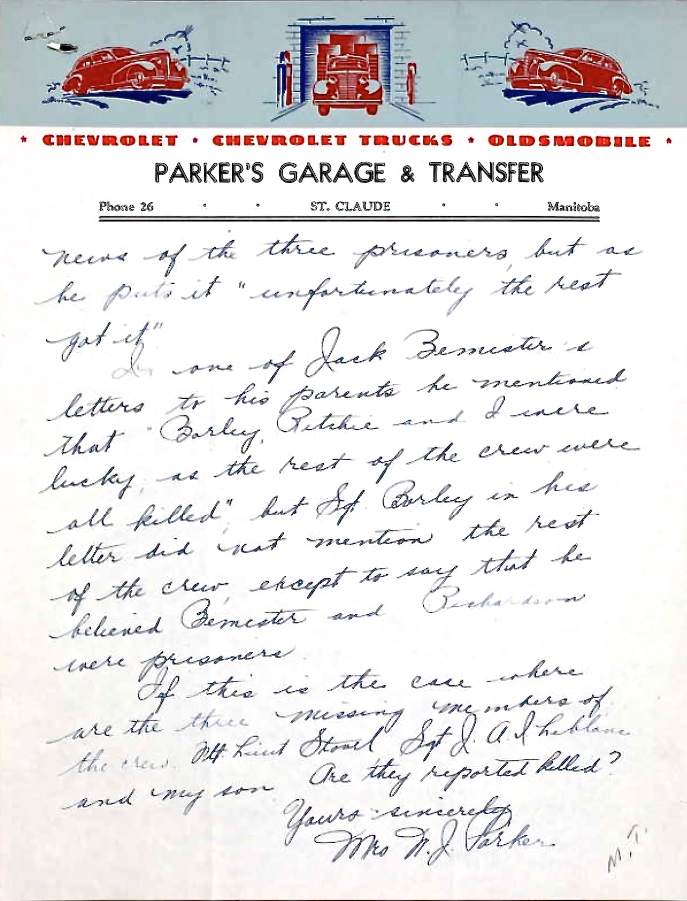 * CHEVROLET * CHEVROLET TRUCKS * OLDSMOBILE *
PARKER'S GARAGE & TRANSFER
Phone 26 ST. CLAUDE Manitoba
news of the three prisoners, but as
he puts it "unfortunately the rest
got it"
In one of Jack Bemister's
letters to his parents he mentioned
that "Borley, Ritchie and I were
lucky, as the rest of the crew were
all killed", but Sgt. Borley in his
letter did not mention the rest
of the crew, except to say that he
believed Bemister and Richardson
were prisoners.
If this is the case where
are the three missing members of
the crew. Flt. Lieut Stovel Sgt J. A. I. Leblanc
and my son Are they reported killed?
Yours sincerely
Mrs W. J. Parker
M.T.